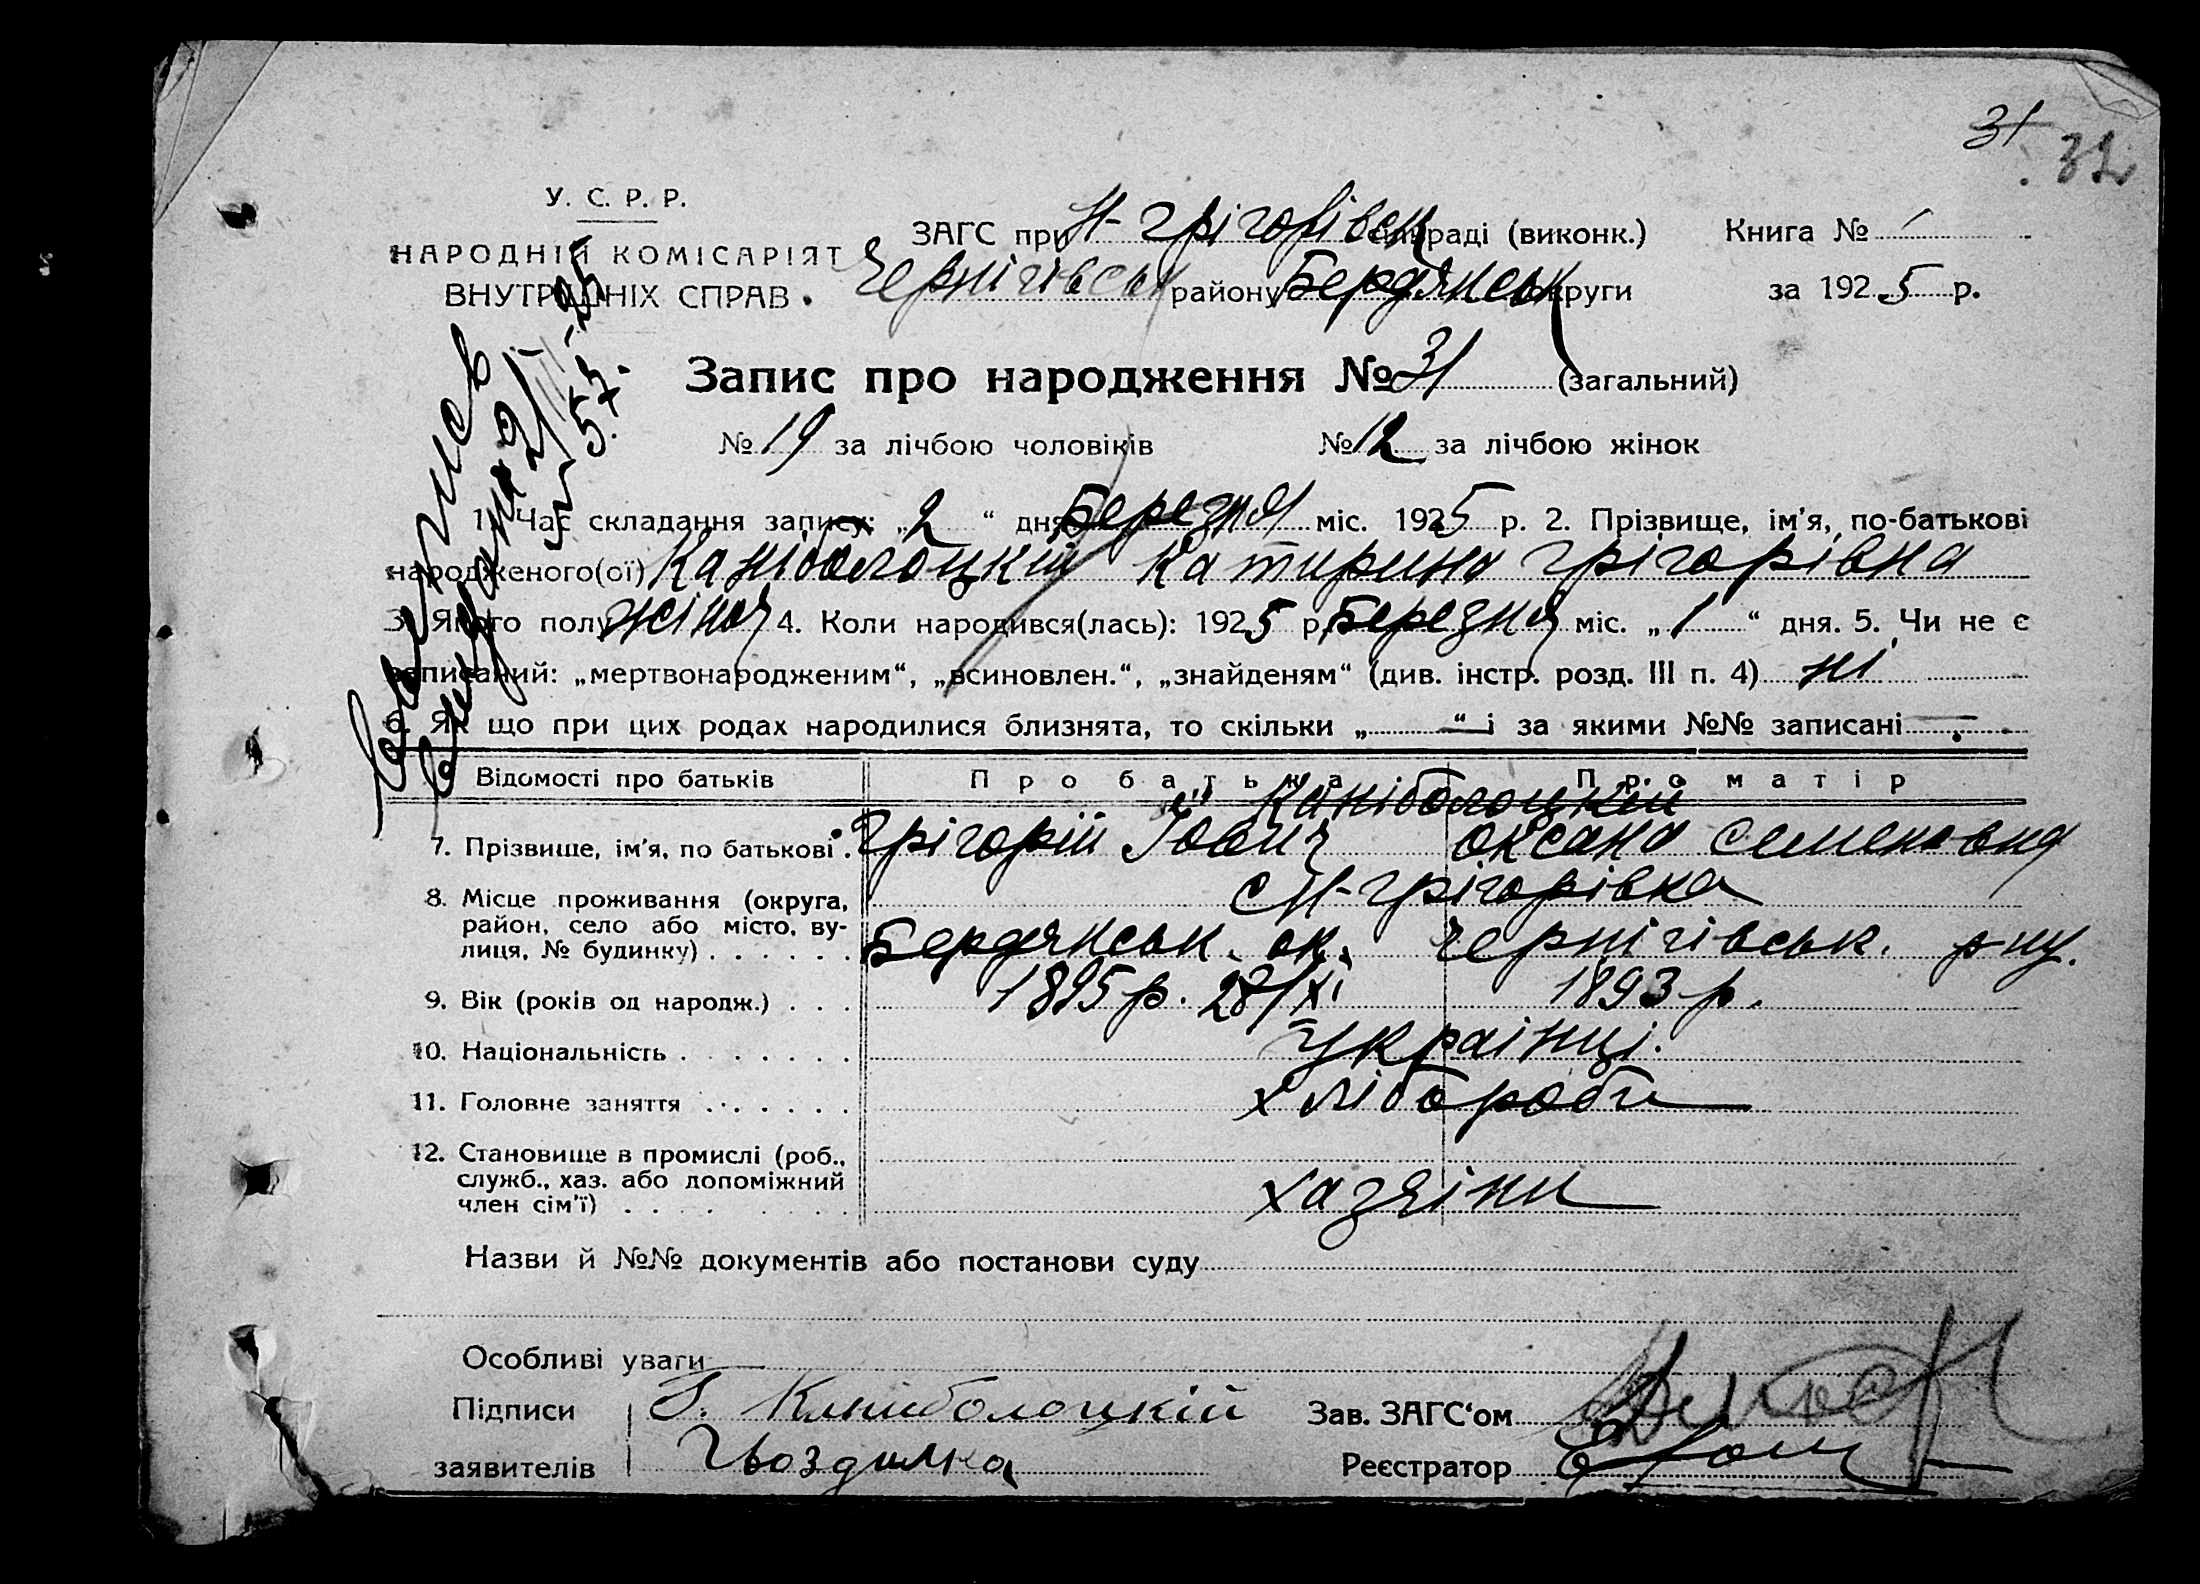 31
32
У. С. Р. Р.
НАРОДНІЙ КОМІСАРІЯТ
ВНУТРІШНІХ СПРАВ.
ЗАГС при Н-Грігорівськ сільраді (виконк.) Книга №
Чернігівськ району Бердянськ округи за 1925 р.
Запис про народження № 31 (загальний)
№ 19 за лічбою чоловіків № 12 за лічбою жінок
1. Час складання запису: „2“ дня Березня міс. 1925 р. 2. Прізвище, ім'я, по-батькові
народженого(ої) Каніболоцкій Катирина Грігорівна
3. Якого полу жіноч 4. Коли народився(лась): 1925 р. Березня міс. „1“ дня. 5. Чи не є
записаний: „мертвонародженим“, „всиновлен.“, „знайденям“ (див. інстр. розд. III п. 4) ні
6. Як що при цих родах народилися близнята, то скільки „—“ і за якими №№ записані —
Відомості про батьків Про батька Про матір
Каніболоцкій
7. Прізвище, ім'я, по батькові. Грігорій Йович Оксана Семеновна
с Н-Грігорівка
8. Місце проживання (округа,
район, село або місто, ву-
лиця, № будинку) . . . . . . Бердянськ. ок. Чернігівськ. р-ну.
9. Вік (років од народж.) . . . 1895 р. 28/XI 1893 р.
10. Національність . . . . . . . Українці.
11. Головне заняття . . . . . . . хлібороби
12. Становище в промислі (роб.,
служб., хаз. або допоміжний
член сім'ї) . . . . . . . . хазяіни
Назви й №№ документів або постанови суду
Особливі уваги
Підписи Г. Каниболоцкій Зав. ЗАГС'ом
заявителів Гвоздилка Реєстратор